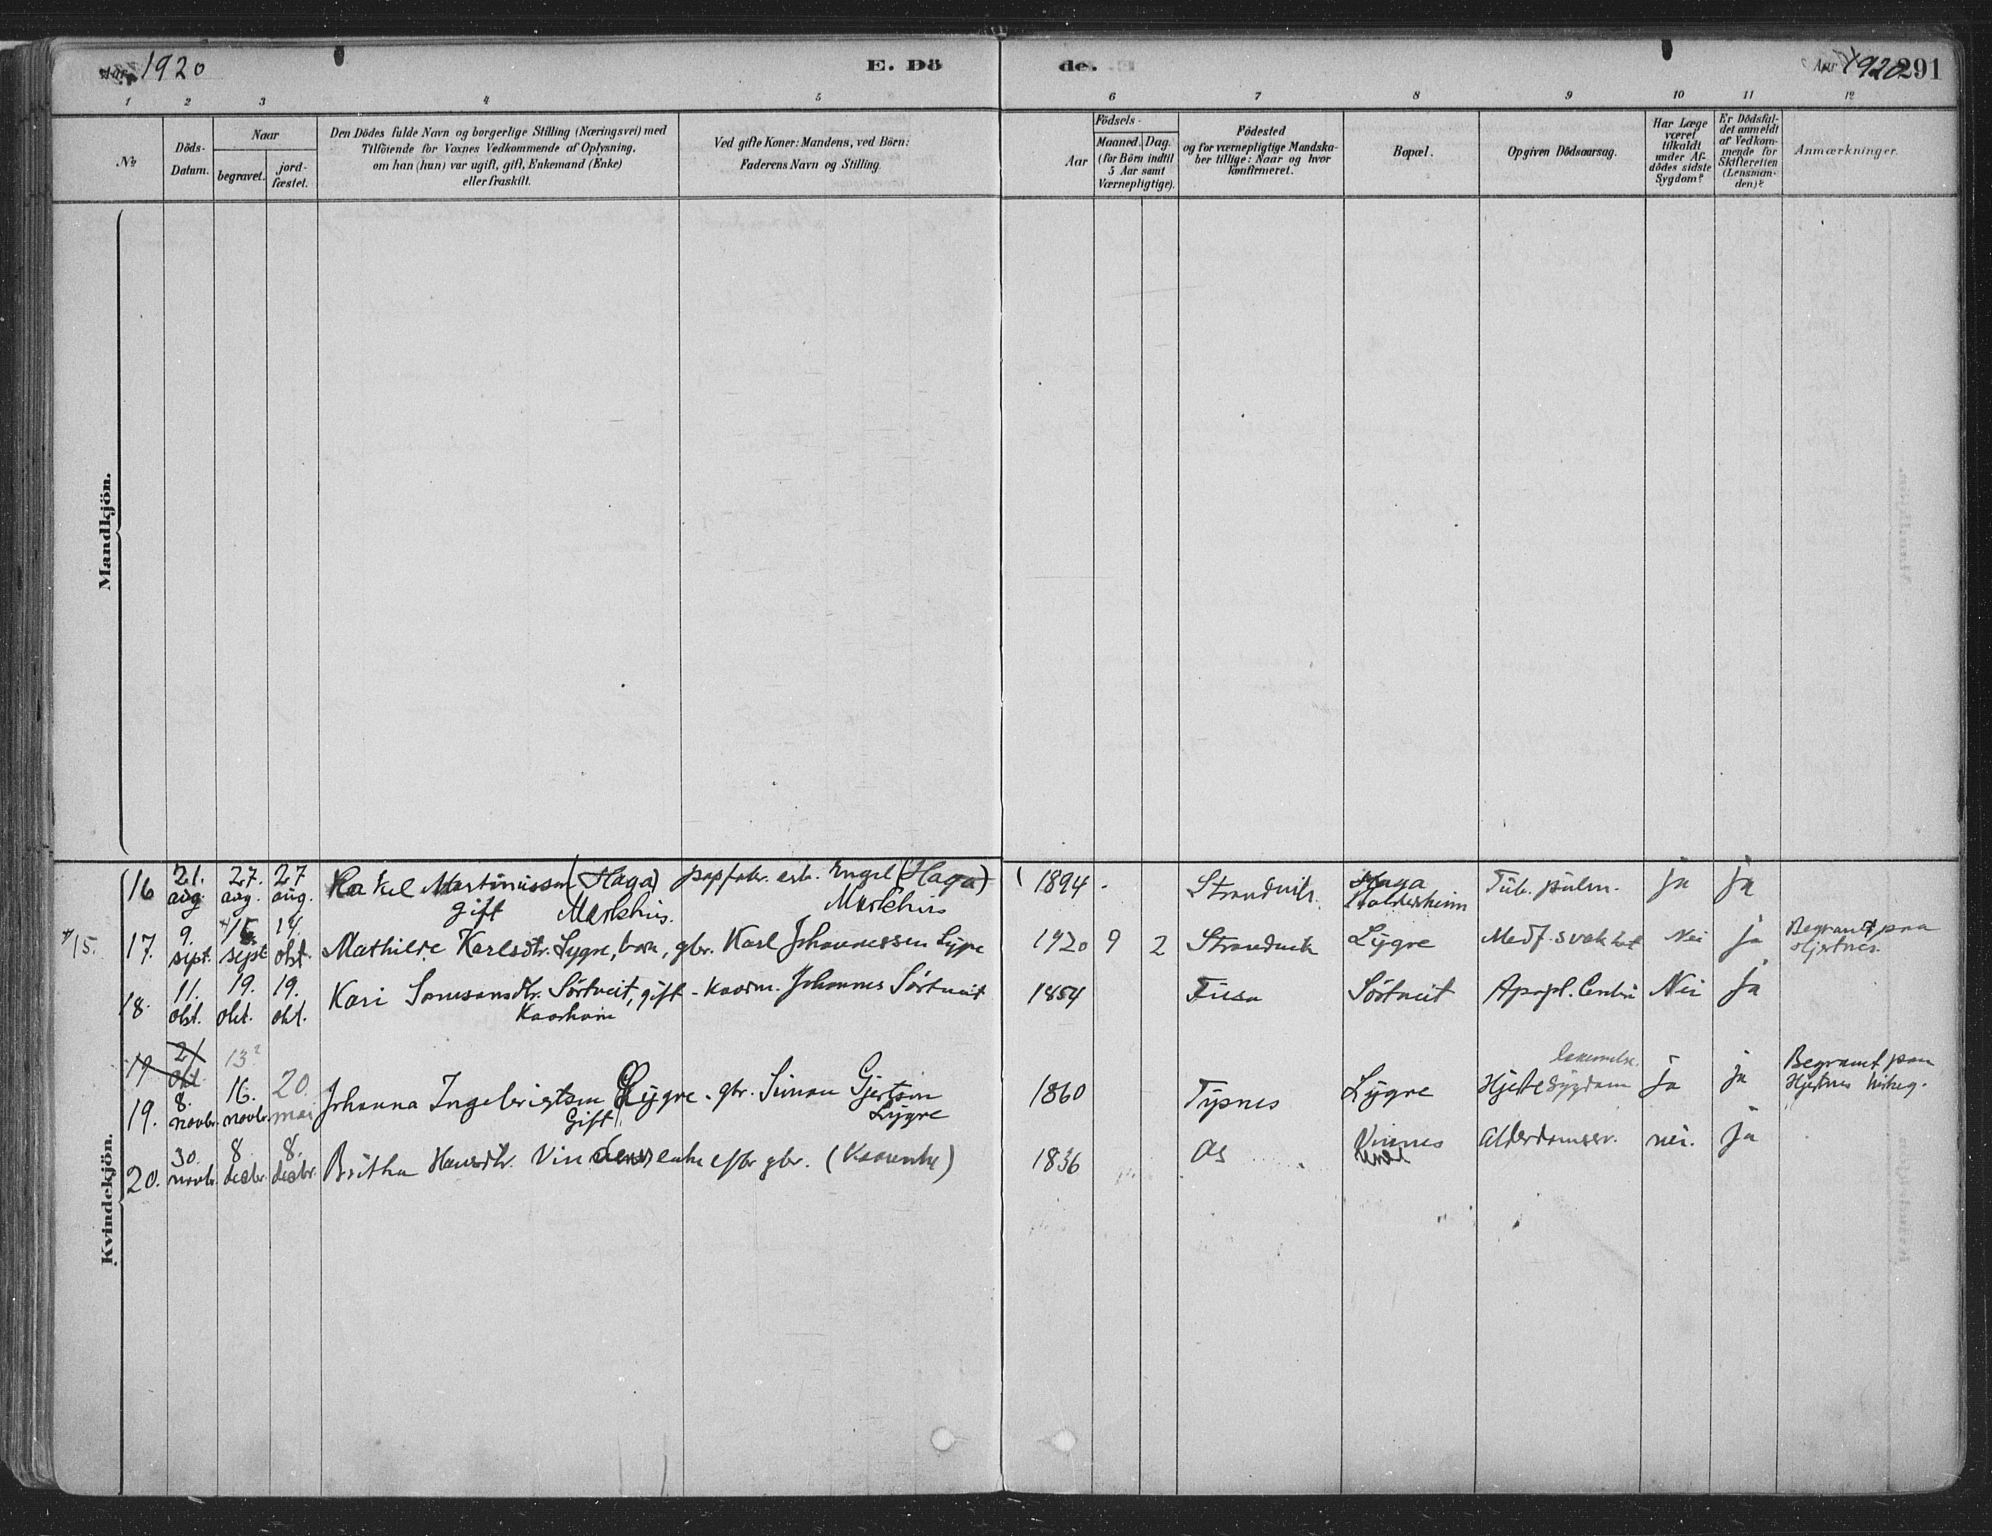 Aar 1920
E. Dö
de.
Aar 1920
291
1 2 3 4 5 6 7 8 9 10 11 12
No
Döds-
Datum.
Naar
begravet.
jord-
fæstet.
Den Dödes fulde Navn og borgerlige Stilling (Næringsvei) med
Tilföiende for Voxnes Vedkommende af Oplysning,
om han (hun) var ugift, gift, Enkemand (Enke)
eller fraskilt.
Ved gifte Koner: Mandens, ved Börn:
Faderens Navn og Stilling.
Födsels-
Aar
Maaned.
Dag.
(for Börn indtil
5 Aar samt
Værnepligtige).
Födested
og for værnepligtige Mandska-
ber tillige: Naar og hvor
konfirmeret.
Bopæl.
Opgiven Dödsaarsag.
Har Læge
været
tilkaldt
under Af-
dödes sidste
Sygdom?
Er Dödsfal-
det anmeldt
af Vedkom-
mende for
Skifteretten
(Lensman-
den)?
Anmærkninger.
Mandkjön.
Kvindekjön.
16 21. aug. 27. aug. 27 aug. Rakel Martinussen (Haga) Engel (Haga) 1894 - Strandvik Haga Tub. pulm. ja ja
gift Markhus. Markhus Halderheim
15.
17. 9. sept. 15 sept 14. okt. Mathilde Karlsdtr. Lygre, barn, gbr. Karl Johannessen Lygre 1920 9 2 Strandvik Lygre Medf. svakhet Nei ja Begravet paa
Hjertnes.
18. 11. okt. 19. okt. 19. okt. Kari Samsonsdtr. Sörtveit, gift - kaarm. Johannes Sörtveit 1854 Fusa Sörtveit Apopl. Nei ja
19 21 okt 13?
19. 8. novbr. 16. novbr. 20. mai Johanna Ingebrigtsen Lygre - gbr. Simon Gjertsen 1860 Lygre Hjertesygdom ja ja Begravet paa
Gift Lygre Hjertnes
20. 30. novbr. 8. decbr. 8. decbr. Britha Hansdtr. Vindenes enke efter gbr. (Kaarenke) 1836 Os Vinnes Alderdomssv. nei. ja